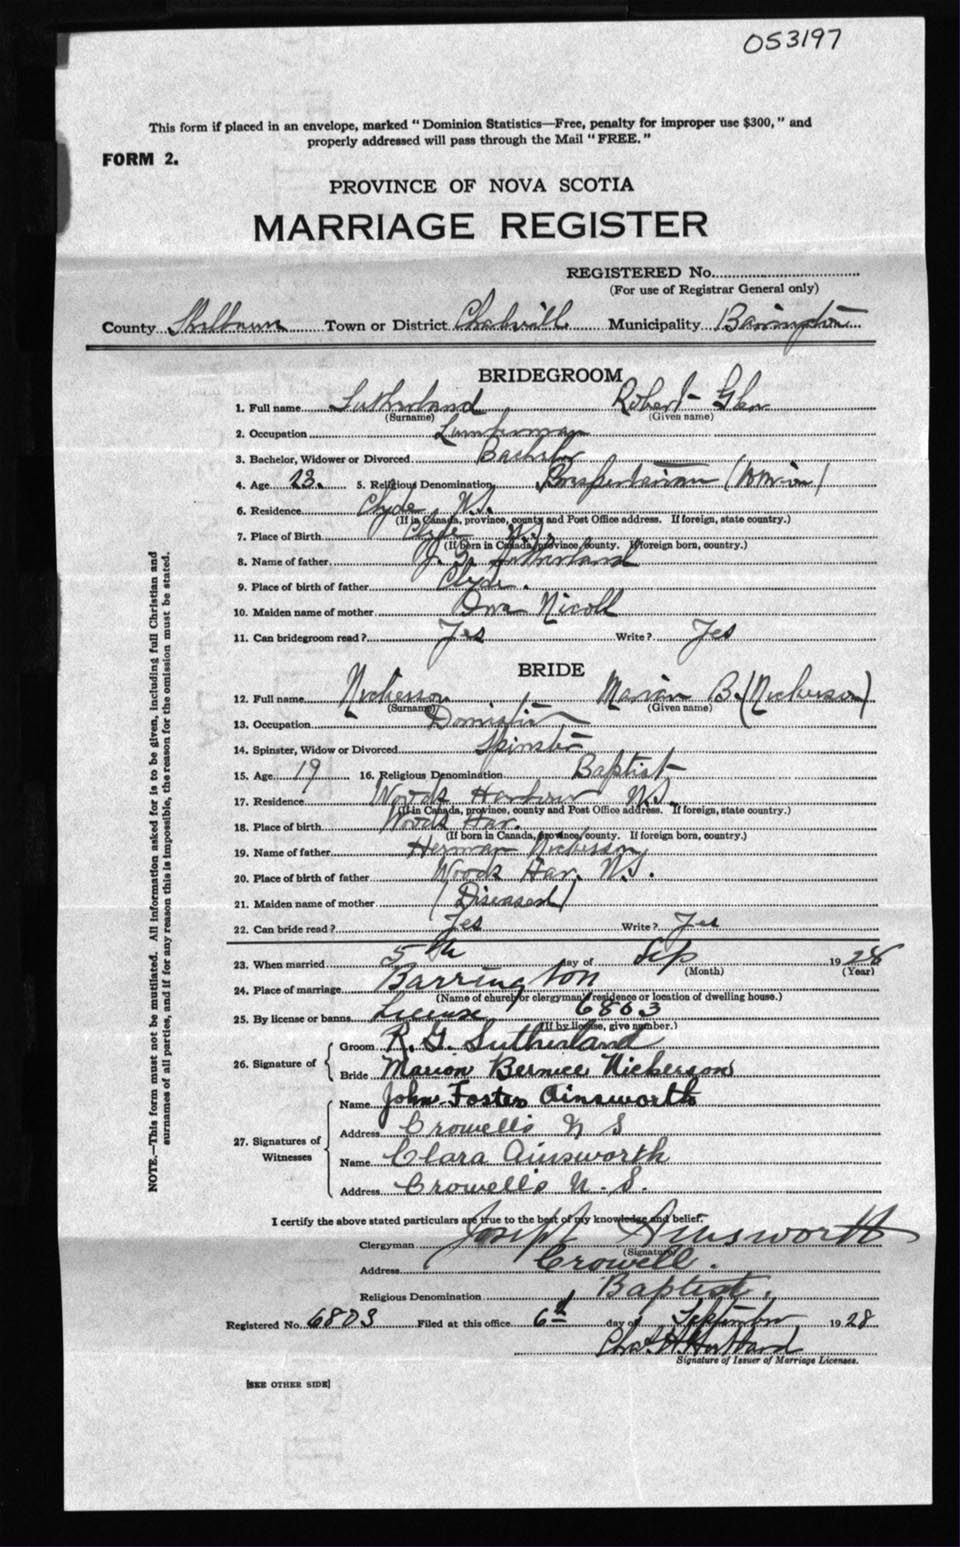 053197
This form if placed in an envelope, marked "Dominion Statistics—Free, penalty for improper use $300," and
properly addressed will pass through the Mail "FREE."
FORM 2.
PROVINCE OF NOVA SCOTIA
MARRIAGE REGISTER
REGISTERED No.
(For use of Registrar General only)
County Shelburne Town or District Municipality Barrington
BRIDEGROOM
1. Full name Sutherland Robert Glen
(Surname) (Given name)
2. Occupation Lumberman
3. Bachelor, Widower or Divorced Bachelor
4. Age 23. 5. Religious Denomination
6. Residence Clyde N.S.
(If in Canada, province, county and Post Office address. If foreign, state country.)
7. Place of Birth Clyde N.S.
(If born in Canada, province, county. If foreign born, country.)
8. Name of father J. S. Sutherland
9. Place of birth of father Clyde.
10. Maiden name of mother Nicoll
11. Can bridegroom read? Yes Write? Yes
BRIDE
12. Full name Nickerson Marian B. (Nickerson)
(Surname) (Given name)
13. Occupation Domestic
14. Spinster, Widow or Divorced Spinster
15. Age 19 16. Religious Denomination Baptist
17. Residence Woods Harbour N.S.
(If in Canada, province, county and Post Office address. If foreign, state country.)
18. Place of birth Woods Har.
(If born in Canada, province, county. If foreign born, country.)
19. Name of father Herman Nickerson
20. Place of birth of father Woods Har. N.S.
21. Maiden name of mother (Diseased)
22. Can bride read? Yes Write? Yes
23. When married 5th day of Sep 1928
(Month) (Year)
24. Place of marriage Barrington
(Name of church or clergyman's residence or location of dwelling house.)
25. By license or banns License 6803
(If by license, give number.)
26. Signature of { Groom R. G. Sutherland
Bride Marion Bernice Nickerson
27. Signatures of Witnesses { Name John Foster Ainsworth
Address Crowell's N S
Name Clara Ainsworth
Address Crowell's N. S.
I certify the above stated particulars are true to the best of my knowledge and belief.
Clergyman Joseph Ainsworth
(Signature)
Address Crowell.
Religious Denomination Baptist.
Registered No. 6803 Filed at this office 6th day of September 1928
Chas. H.
Signature of Issuer of Marriage Licenses.
[SEE OTHER SIDE]
NOTE.—This form must not be mutilated. All information asked for is to be given, including full Christian and
surnames of all parties, and if for any reason this is impossible, the reason for the omission must be stated.